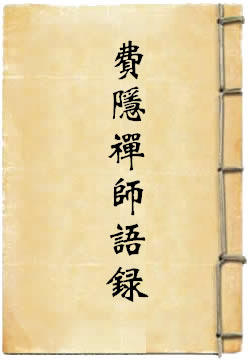 費隱禪師語録